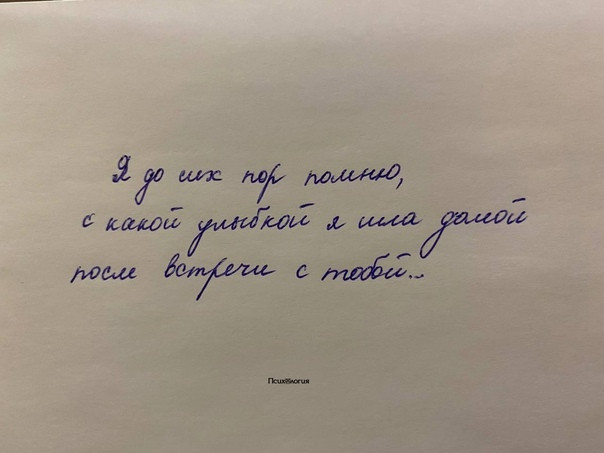 Я до сих пор помню,
с какой улыбкой я шла домой
после встречи с тобой...
Психология